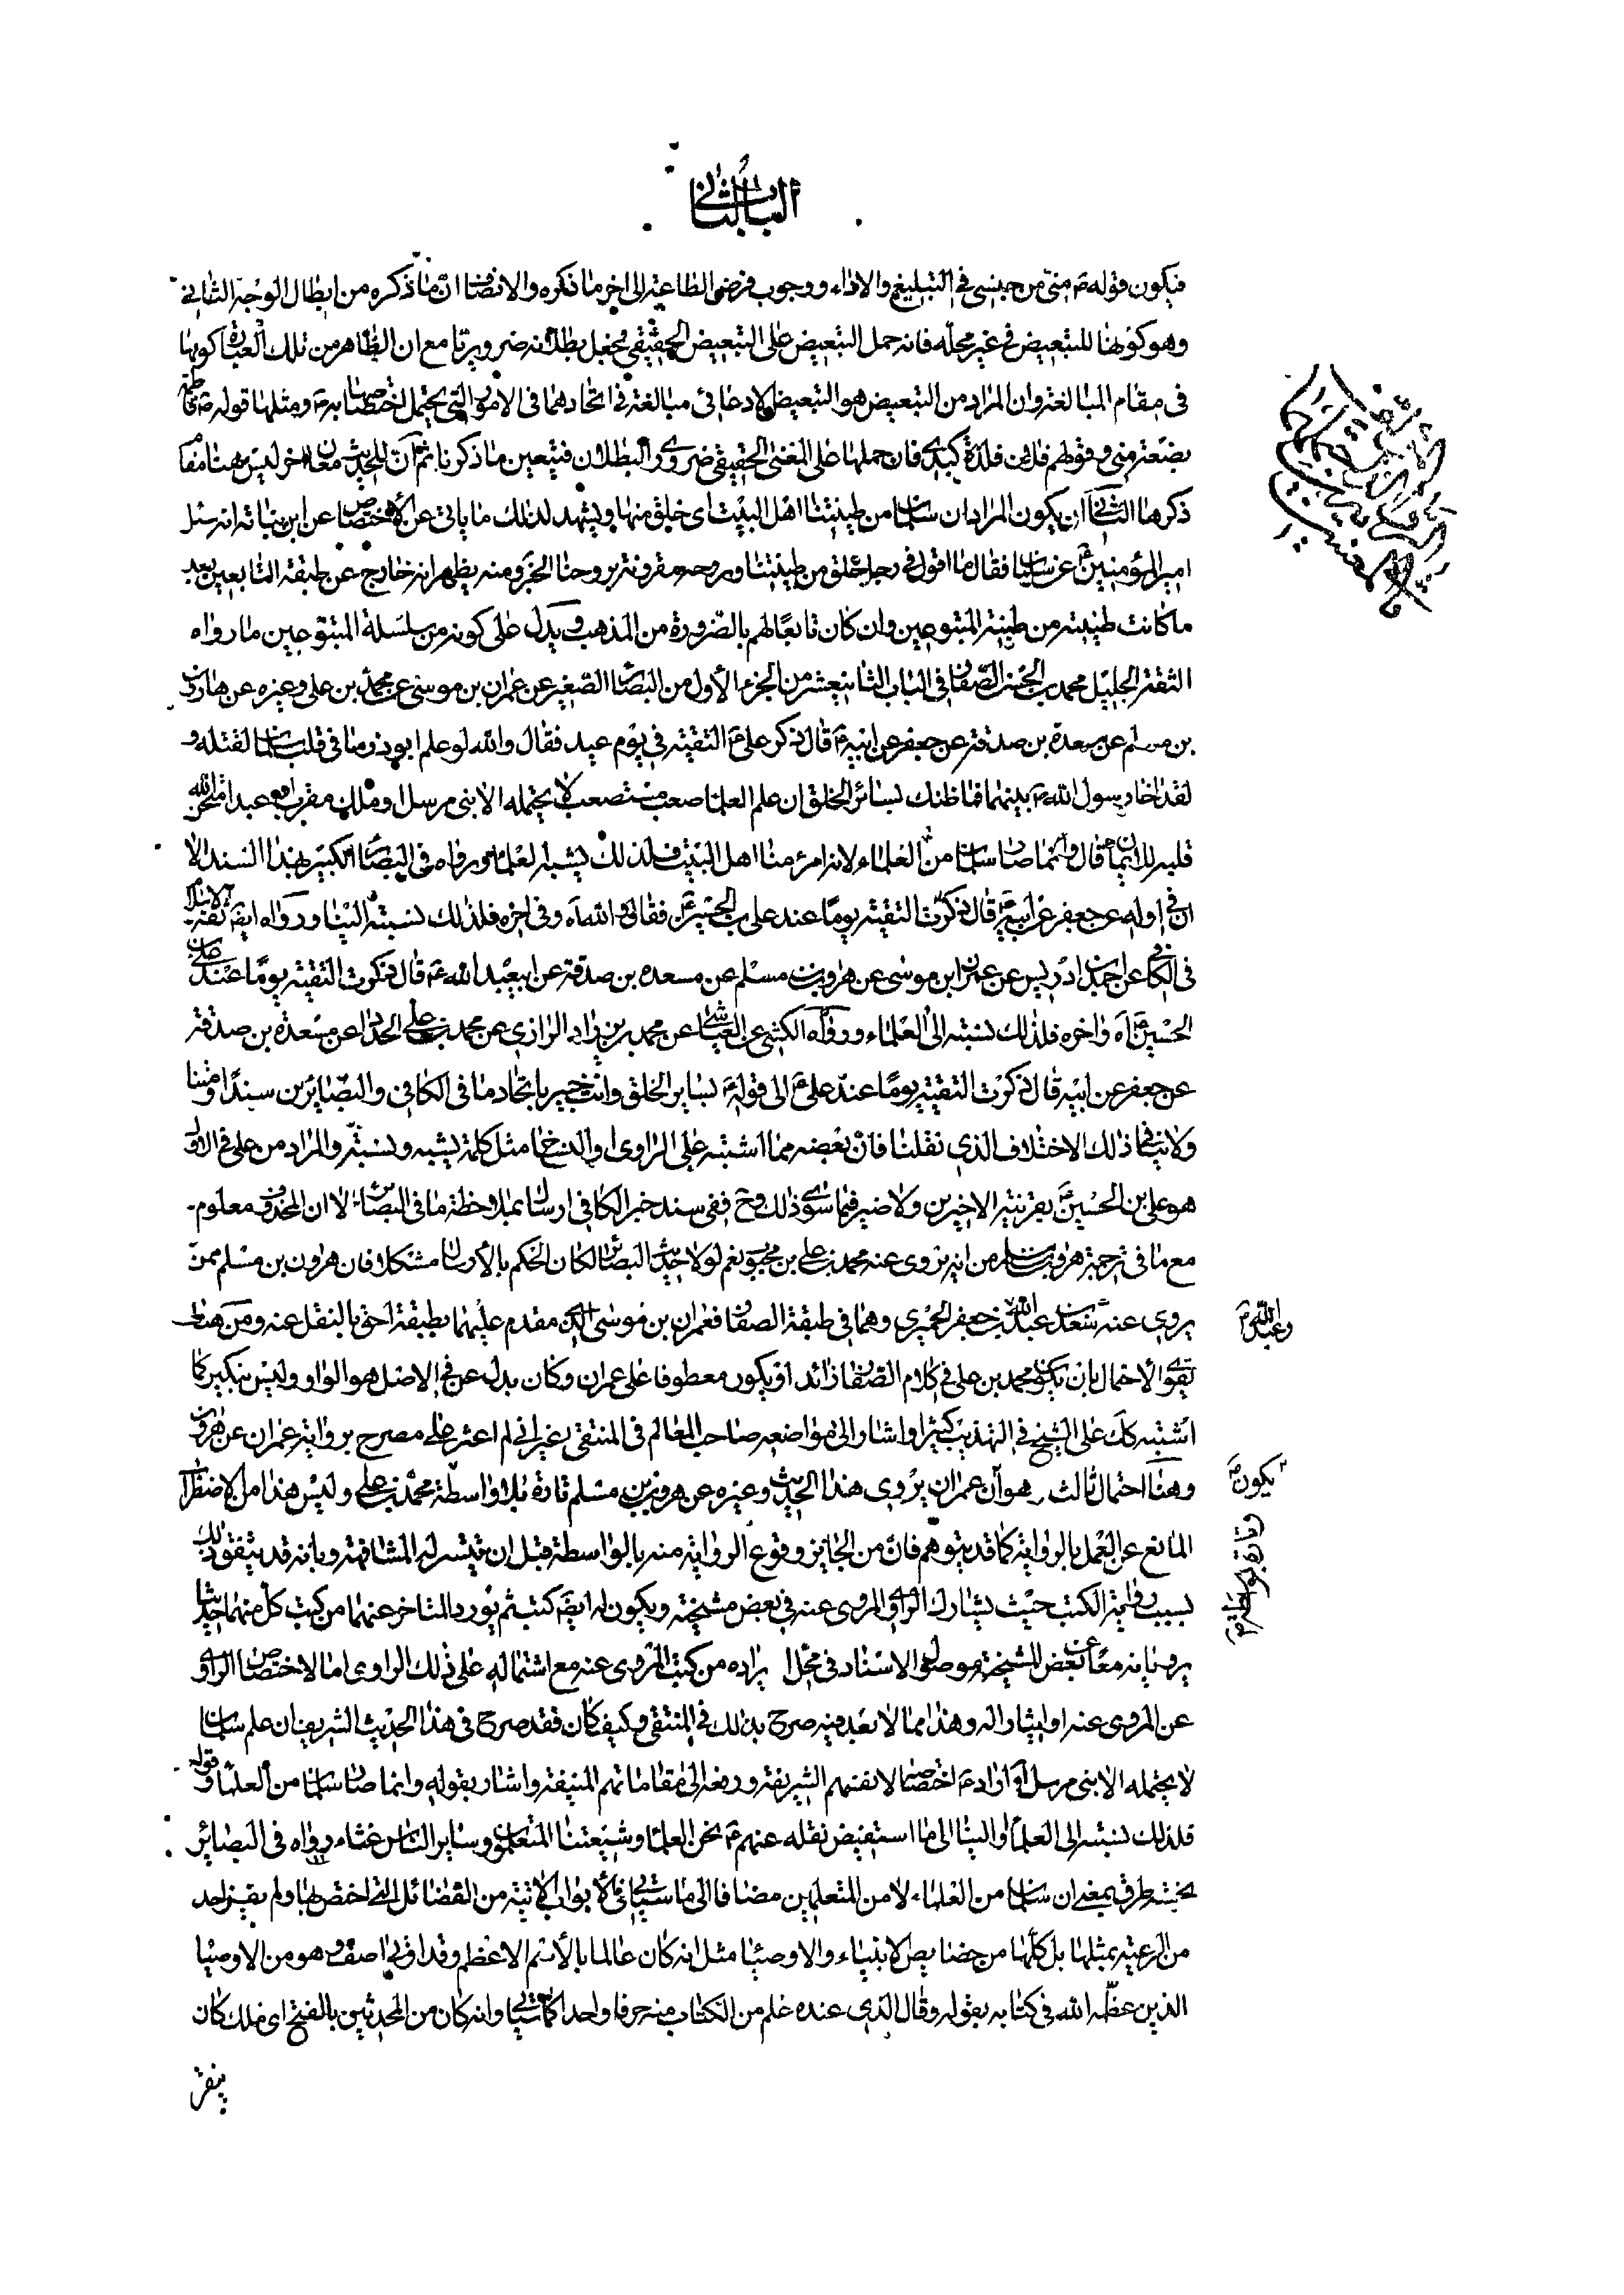 الباب الثاني
فيكون قوله ع مني من جنسي في التبليغ والاداء ووجوب فرض الطاعة الى اخر ما ذكره والانصاف ان ما ذكره من ابطال الوجه الثاني
وهو كونها للتبعيض في غير محله فانه حمل التبعيض على التبعيض الحقيقي فجعل بطلانه ضروريا مع ان الظاهر من تلك العبارة كونها
في مقام المبالغة وان المراد من التبعيض هو التبعيض الادعائي مبالغة في اتحادهما في الامور التي يحتمل اختصاصها به ع ومثلها قوله ص فاطمة
بضعة مني وقولهم فلان فلذة كبدي فان حملها على المعنى الحقيقي ضروري البطلان فيتعين ما ذكرنا ثم ان للحديث معان اخر ليس هنا مقام
ذكرها الثاني ان يكون المراد ان سلمان من طينتنا اهل البيت اى خلق منها ويشهد لذلك ما ياتي عن الاختصاص عن ابن نباته انه سئل
امير المؤمنين ع عن سلمان فقال ما اقول في رجل خلق من طينتنا وروحه مقرونة بروحنا الخبر ومنه يظهر انه خارج عن طبقة التابعين بعد
ما كانت طينته من طينة المتبوعين وان كان تابعا لهم بالضرورة من المذهب ويدل على كونه من سلسلة المتبوعين ما رواه
الثقة الجليل محمد بن الحسن الصفار في الباب الثانيعشر من الجزء الأول من البصائر الصغير عن عمران بن موسى عن محمد بن علي وغيره عن هارون
بن مسلم عن مسعدة بن صدقة عن جعفر عن ابيه ع قال ذكر علي ع التقية في يوم عيد فقال والله لو علم ابوذر ما في قلب سلمان لقتله و
لقد اخا رسول الله ص بينهما فما ظنك بسائر الخلق ان علم العلماء صعب مستصعب لا يحتمله الا نبي مرسل او ملك مقرب او عبد امتحن الله
قلبه للايمان قال وانما صار سلمان من العلماء لانه امرء منا اهل البيت فلذلك يشبه لعلماء ورواه في البصائر الكبير بهذا السند الا
ان في اوله عن جعفر عن ابيه ع قال ذكرت التقية يوما عند علي بن الحسين ع فقال والله اه وفي اخره فلذلك نسبته الينا ورواه ايضا ثقة الاسلام
في الكافي عن احمد بن ادريس عن عمران بن موسى عن هرون بن مسلم عن مسعده بن صدقة عن ابيعبد الله ع قال ذكرت التقية يوما عند علي بن
الحسين ع اه واخره فلذلك نسبته الى العلماء ورواه الكشي عن العياشي عن محمد بن يزداد الرازي عن محمد بن علي الحداد عن مسعدة بن صدقة
عن جعفر عن ابيه قال ذكرت التقية يوما عند علي ع الى قوله ع بساير الخلق وانت خبير باتحاد ما في الكافي والبصائرين سندا ومتنا
ولا ينافي ذلك الاختلاف الذي نقلنا فان بعضه مما اشتبه على الراوى او النساخ مثل كلمة يشبه ونسبته والمراد من علي في الاول
هو علي بن الحسين ع بقرينة الاخيرين ولا ضير فيما سوى ذلك وح ففي سند خبر الكافي ارسال بملاحظة ما في البصائر الا ان المحذوف معلوم
مع ما في ترجمة هرون بن مسلم من انه يروى عنه محمد بن علي بن محبوب نعم لولا حديث البصائر لكان الحكم بالأرسال مشكلا فان هرون بن مسلم ممن
يروى عنه سعد بن عبد الله بن جعفر الحميرى وهما في طبقة الصفار فعمران بن موسى الذي مقدم عليهما بطبقة احق بالنقل عنه ومن هنا
وعبد الله م
يقوى الاحتمال بان يكون محمد بن علي في كلام الصفار زائدا او يكون معطوفا على عمران وكان بدل عن في الاصل هو الواو وليس بنكير كما
اشتبه كك على الشيخ في التهذيب كثيرا واشار الى مواضعه صاحب المعالم في المنتقى غير اني لم اعثر على مصرح برواية عمران عن هرون
وهنا احتمال ثالث هو ان عمران يروى هذا الحديث وغيره عن هرون بن مسلم تارة بلا واسطة محمد بن علي وليس هذا من الاضطراب
يكون م
المانع عن العمل بالرواية كما قد يتوهم فان من الجايز وقوع الرواية منه بالواسطة قبل ان تيسر له المشافهة وبانه قد يتفق ذلك
بسبب رواية الكتب حيث يشارك الراوي المروى عنه في بعض مشيخته ويكون له ايضا كتب ثم يورد المتاخر عنهما من كتب كل منهما حديثا
يرويانه معا عن بعض المشيخة موصول الاسناد في محل ايراده من كتب المروى عنه مع اشتماله على ذلك الراوى اما لاختصاص الراوي
عن المروى عنه او ايثارا له وهذا مما لا بعد فيه صرح بذلك في المنتقى وكيف كان فقد صرح في هذا الحديث الشريف ان علم سلمان
لا يحتمله الا نبي مرسل اه اراد ع اختصاصا لانفسهم الشريفة ورفعه الى مقاماتهم المنيفة واشار بقوله وانما صار سلمان من العلماء وقوله
فلذلك نسبته الى العلماء او الينا الى ما استفيض نقله عنهم ع نحن العلماء وشيعتنا المتعلمون وساير الناس غثاء رواه في البصائر
بخمسة طرق بمعنى ان سلمان من العلماء لا من المتعلمين مضافا الى ما سياتي في الابواب الآتية من الفضائل التي اختص بها ولم يفز احد
من الرعية بمثلها بل كلها من خصايص الانبياء والاوصياء مثل انه كان عالما بالأسم الاعظم وقد اوتي اصف وهو من الاوصياء
الذين عظمه الله في كتابه بقوله وقال الذي عنده علم من الكتاب منه حرفا واحدا كما سياتي وانه كان من المحدثين بالفتح اى ملك كان
ينقر